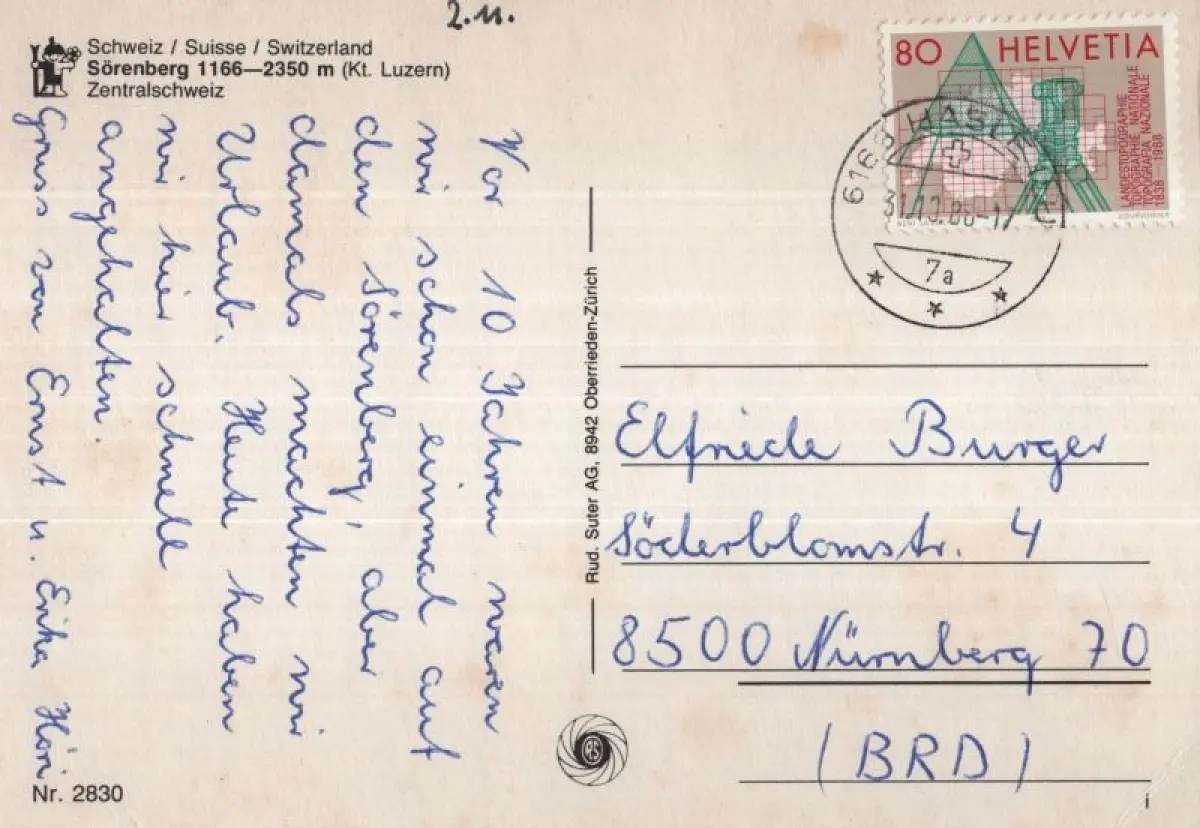 2.11.
Schweiz / Suisse / Switzerland
Sörenberg 1166—2350 m (Kt. Luzern)
Zentralschweiz
Vor 10 Jahren waren
wir schon einmal auf
den Sörenberg, aber
damals machten wir
Urlaub. Heute haben
wir hier schnell
angehalten.
Gruss von Ernst u. Erika
Nr. 2830
Rud. Suter AG, 8942 Oberrieden-Zürich
RS
80 HELVETIA
LANDESTOPOGRAPHIE
TOPOGRAPHIE NATIONALE
TOPOGRAFIA NAZIONALE
1838—1988
COURVOISIER
6166 HASLE
7a
Elfriede Burger
Söderblomstr. 4
8500 Nürnberg 70
(BRD)
i